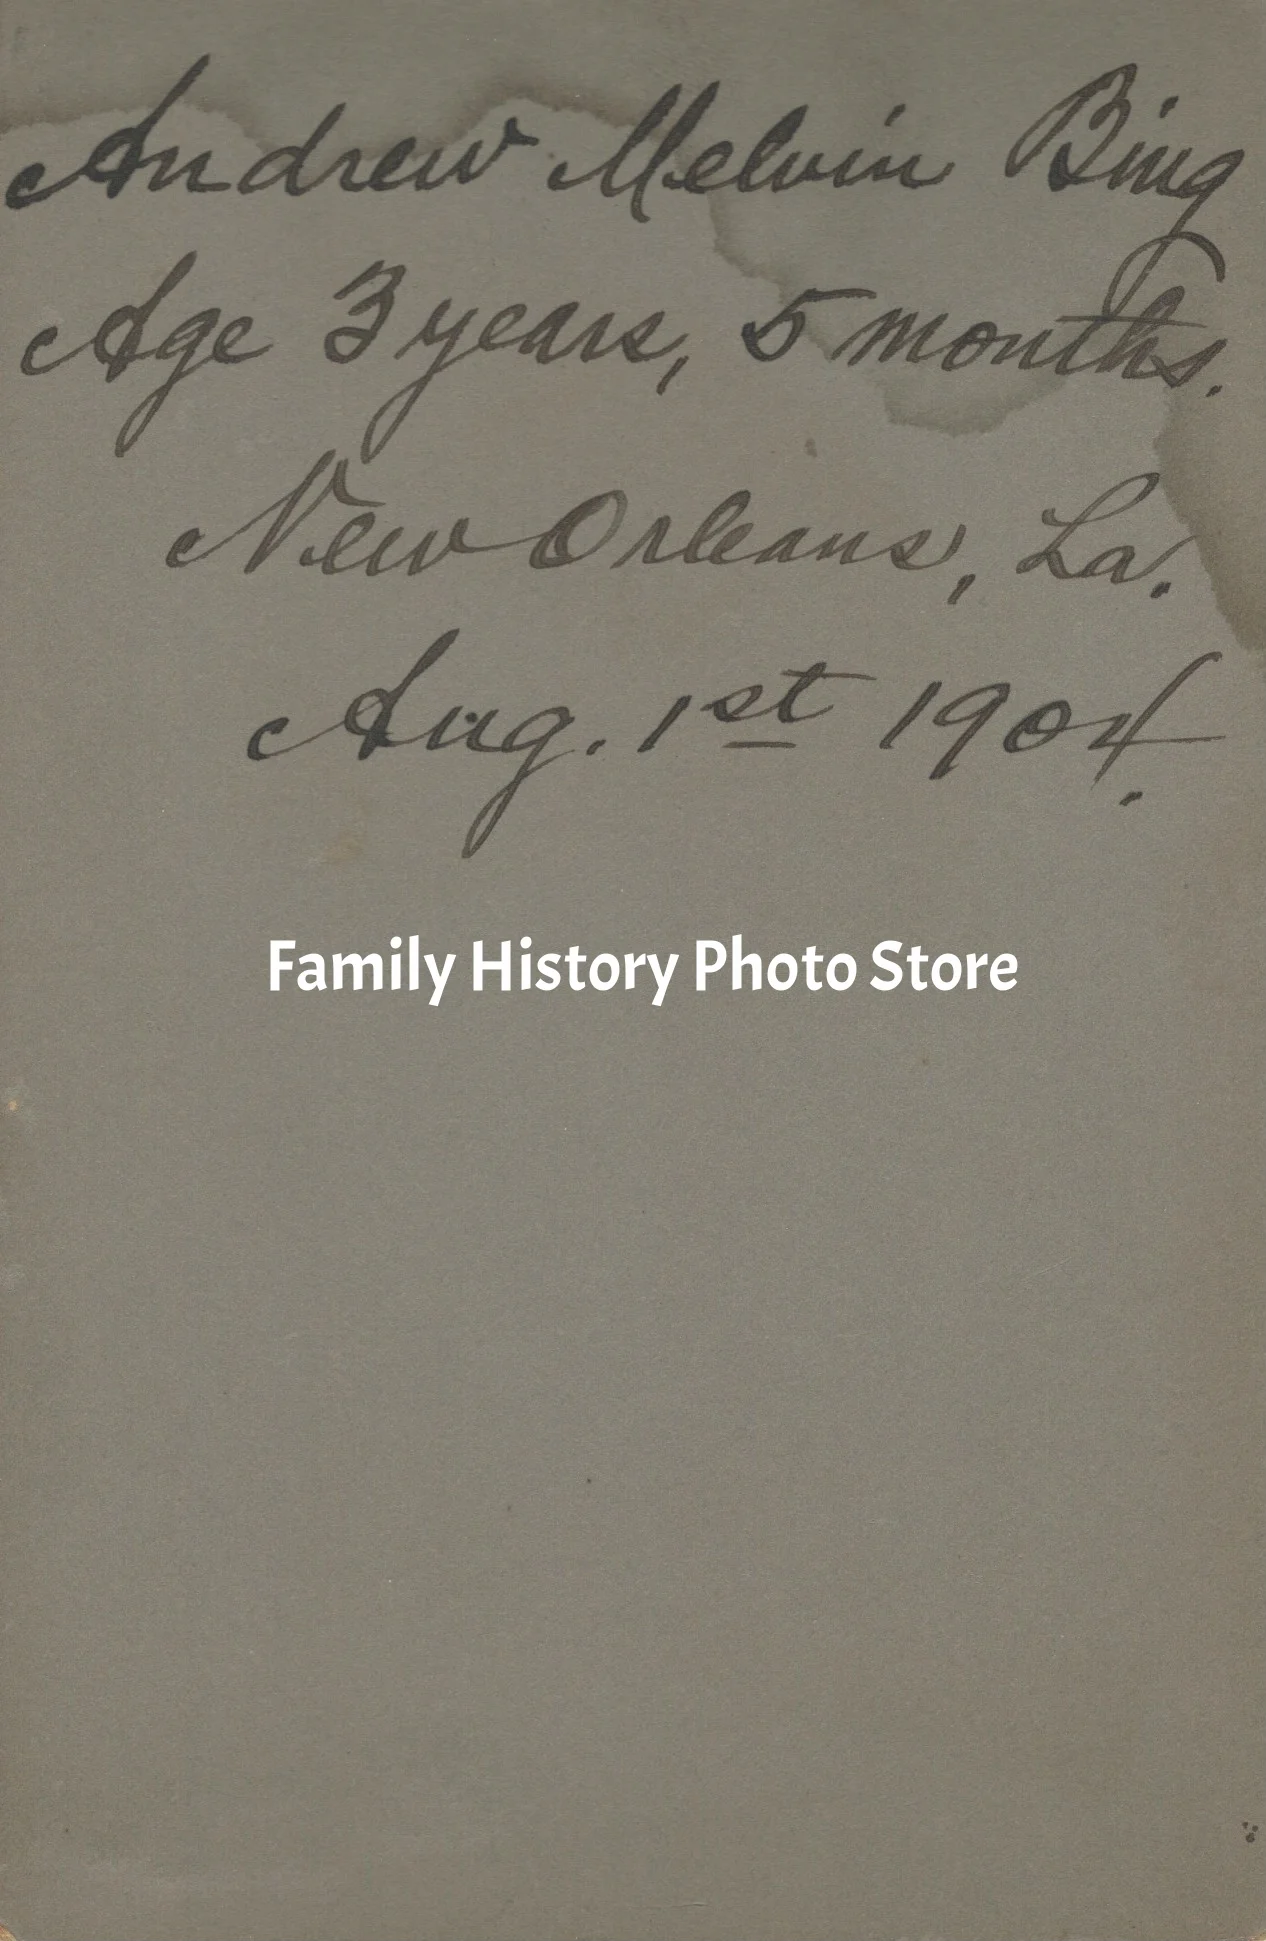 Andrew Melvin Bing
Age 3 years, 5 months.
New Orleans, La.
Aug. 1st 1904.
Family History Photo Store